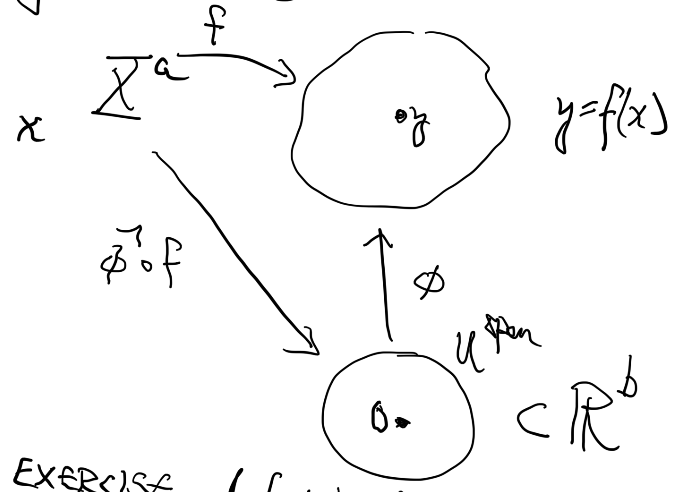 f
X^a
y
y=f(x)
x
ϕ⁻¹∘f
ϕ
U^open
0
⊂ ℝ^b
EXERCISE